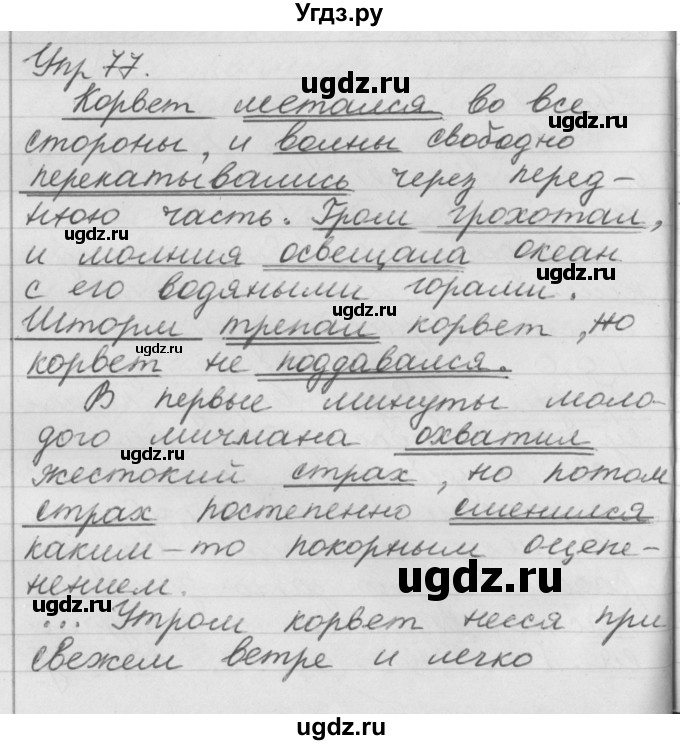 Угдз.ру
Упр 77.
Корвет метался во все
стороны, и волны свободно
перекатывались через перед-
нюю часть. Гром грохотал,
и молния освещала океан
с его водяными горами.
Шторм трепал корвет, но
корвет не поддавался.
В первые минуты моло-
дого мичмана охватил
жестокий страх, но потом
страх постепенно сменился
каким-то покорным оцепе-
нением.
... Утром корвет несся при
свежем ветре и легко
ugdz.ru
ugdz.ru
ugdz.ru
ugdz.ru
ugdz.ru
ugdz.ru
ugdz.ru
ugdz.ru
ugdz.ru
ugdz.ru
ugdz.ru
ugdz.ru